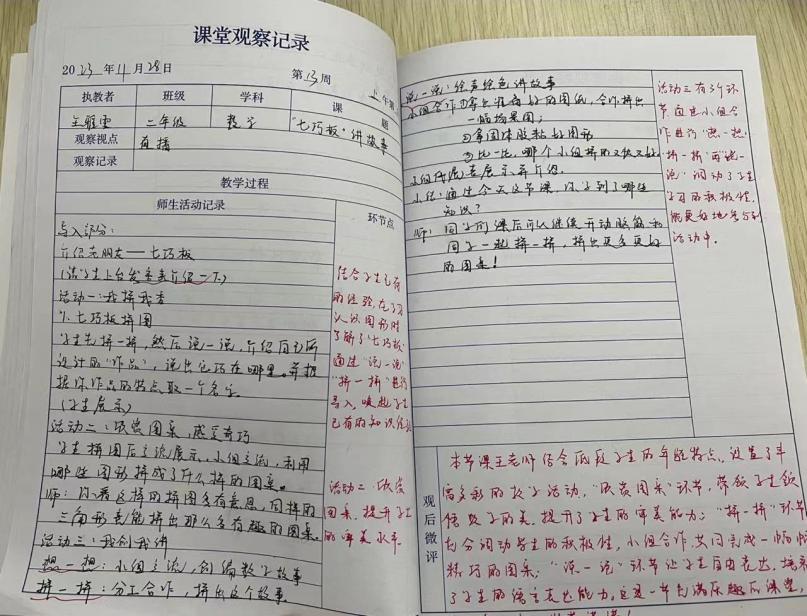 课堂观察记录
2023年11月28日 第13周 上午第
执教者 班级 学科 课题
王雅雯 二年级 数学 "七巧板"讲故事
观察视点 直播
观察记录
教学过程
师生活动记录 环节点
导入部分:
介绍老朋友——七巧板
(请学生上台发言来介绍一下)
活动一:我拼我秀
1、七巧板拼图
学生先拼一拼,然后说一说,介绍自己所
设计的"作品",说出它巧在哪里。并根
据你作品的特点取一个名字。
(学生展示)
活动二:欣赏图案,感受奇巧
学生拼图后交流展示,小组交流,利用
哪些图形拼成了什么样的图案。
师:你看这样的拼图多有意思,同样的
三角形竟能拼出那么多有趣的图案。
活动三:我创我讲
想一想:小组交流,创编数学故事
拼一拼:分工合作,拼出这个故事
结合学生已有
的经验,在学习
认识图形时
了解了"七巧板"
通过"说一说"
"拼一拼"进行
导入,唤起学生
已有的知识经验
活动二:欣赏
图案,提升学生
的审美水平
说一说:绘声绘色讲故事
小组合作:①拿出准备好的图纸,合作拼出
一幅场景图;
②拿固体胶粘好图形
③比一比,哪个小组拼的又快又好
小组代表展示并介绍。
小结:通过今天这节课,你学到了哪些
知识?
师:同学们课后可以继续开动脑筋和
同学一起拼一拼,拼出更多更好
的图案!
活动三有3个环
节,通过小组合
作进行"想一想,
拼一拼"再"说一
说"调动了学生
学习的积极性,
能更好地参与到
活动中。
观后微评
本节课王老师结合低段学生的年龄特点,设置了丰
富多彩的数学活动,"欣赏图案"环节,带领学生领
悟数学的美,提升了学生的审美能力;"拼一拼"环节
充分调动学生的积极性,小组合作,共同完成一幅幅
精巧的图案;"说一说"环节让学生自由表达,培养
了学生的语言表达能力。这是一节充满乐趣的课堂,